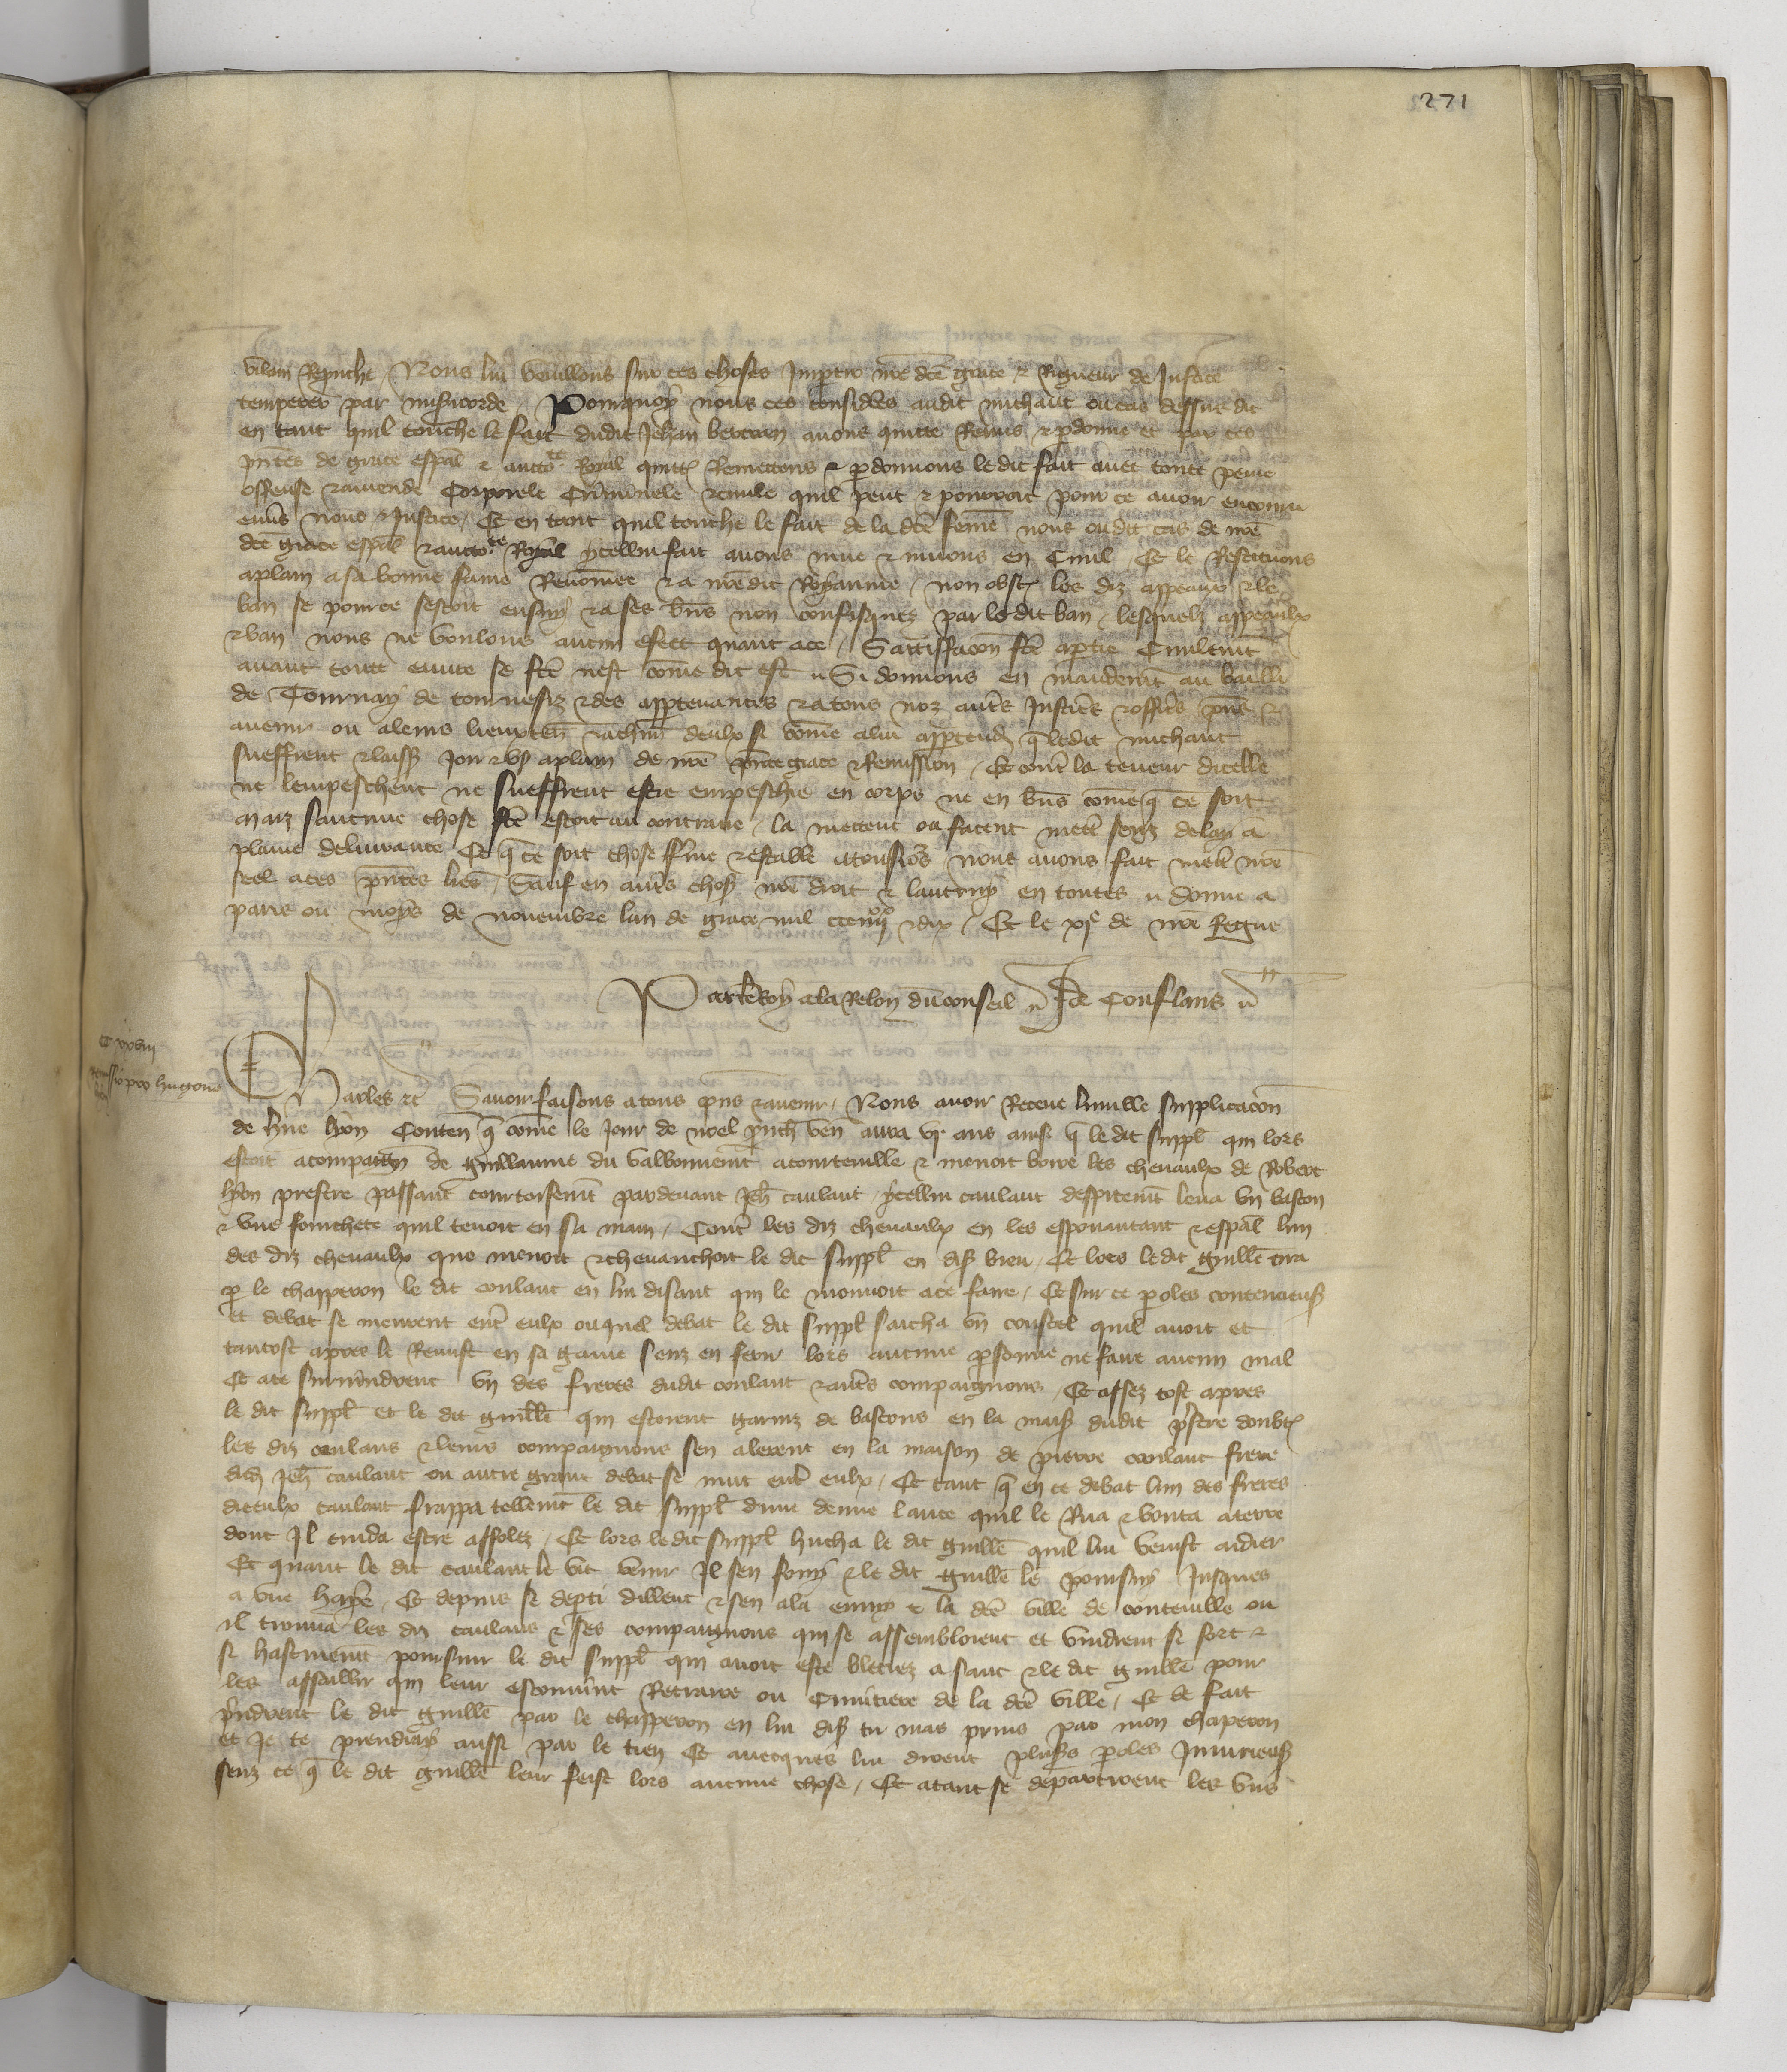 271
vilain reprouche / Nous lui veuillons sur ces choses Impartir nrē dcē grace & Rigueur de Justice
temperer par misericorde / Pourquoy nous ces considerees audit michaut ou cas dessus dit
en tant quil touche le fait dudit Jehan bertran avons quitte Remis & pdonne et par ces
pñtes de grace espāl & auctorite Royal quittōs Remettons & pdonnons le dit fait avec toute peine
offense & amende Corporele Criminele & civile quil peut & pourroit pour ce avoir encouru
envs nous & Justice / Et en tant quil touche le fait de la dcē femē nous ou dit cas de nrē
dcē grace espāl & auctorite Royal ycellui fait avons mue & muons en Civil Et le Restituons
a plain a sa bonne fame Renomee & a nrē dit Royaume / non obst les diz appeaux & le
ban se pource sestoit ensuy & a ses bñs non confisquez par le dit ban / lesquelz appeaulx
& ban nous ne voulons aucun effect quant a ce / Sattiffacōn fcē a partie Civilemt
avant toute euvre se fcē nest come dit est Si donnons en mandemt au bailli
de Tournay de tournesiz & des appartenances & a tous noz autrs Justicrs & officrs pñs &
avenir ou a leurs lieuxten & a chun deulx si come a lui apptendra q le dit michaut
sueffrent & laissent Jouir & user a plain de nrē pñte grace & Remission / Et contre la teneur dicelle
ne lempeschent ne sueffrent estre empeschie en corps ne en bñs comēt q ce soit
Maiz saucune chose fcē estoit au contraire / la mettent ou facent mettre senz delay a
plaine delivrance Et q ce soit chose ferme & estable a tousjours nous avons fait mettre nrē
seel a ces pñtes lres / Sauf en autrs choses nrē droit & lautruy en toutes donne a
paris ou moys de novembre lan de grace mil ccc iiijxx & dix / Et le xje de nrē Regne
Par le Roy a la Relon du conseil J de Conflans
cc xxviij
Remissio pro hugone
lyon
Charles etc Savoir faisons a tous pñs & avenir / Nous avoir Receue lumble supplicacōn
de hue lyon Contenant q come le Jour de noel prouch ven aura vj ans ainsi q le dit suppl qui lors
estoit acompaign de Guillaume du valbonement a conteville & menoit boire les chevaulx de Robert
lyon prestre passant courtoisemt pardevant Jeh caulant / ycellui caulant despitemt leva un baston
& une fourchete quil tenoit en sa main / Contre les diz chevaulx en les espouantant & espāl lun
des diz chevaulx que menoit & chevauchoit le dit suppl en disant bieu / Et lors le dit guillē tira
p le chapperon le dit coulant en lui disant qui le mouvoit a ce faire / Et sur ce paroles contencieuses
et debat se meurent entr eulx ouquel debat le dit suppl sacha un coustel quil avoit et
tantost apres le Remist en sa gaine senz en ferir lors aucune personne ne faire aucun mal
Et a ce survindrent un des freres dudit coulant & autrs compaignons / Et assez tost apres
le dit suppl et le dit guillē qui estoient garniz de bastons en la mais dudit prestre doubt
les diz coulans & leurs compaignons sen alerent en la maison de pierre coulant frere
dudit Jeh caulant ou autre grant debat se mut entr eulx / Et tant q en ce debat lun des freres
diceulx caulant frappa tellemt le dit suppl dune demie lance quil le Rua & bouta a terre
dont Il cuida estre affolez / Et lors le dit suppl hucha le dit guillē quil lui venist aidier
Et quant le dit caulant le vit venir Il sen fouy & le dit guillē le poursuy Jusques
a une haye / Et depuis se departi dillent & sen ala enmy la dcē ville de conteville ou
il trouva les diz caulans & ses compaignons qui se assembloient et vindrent si fort &
si hastivemt poursuir le dit suppl qui avoit este bleciez a sanc & le dit guillē pour
les assaillir qui leur escouvint Retraire ou Cimitiere de la dcē ville / Et de fait
prindrent le dit guillē par le chapperon en lui disant tu mas prins par mon chaperon
et Je te prendray aussi par le tien Et avecques lui dirent plusrs paroles Injurieuses
senz ce q le dit guillē leur feist lors aucune chose / Et atant se departirent les uns